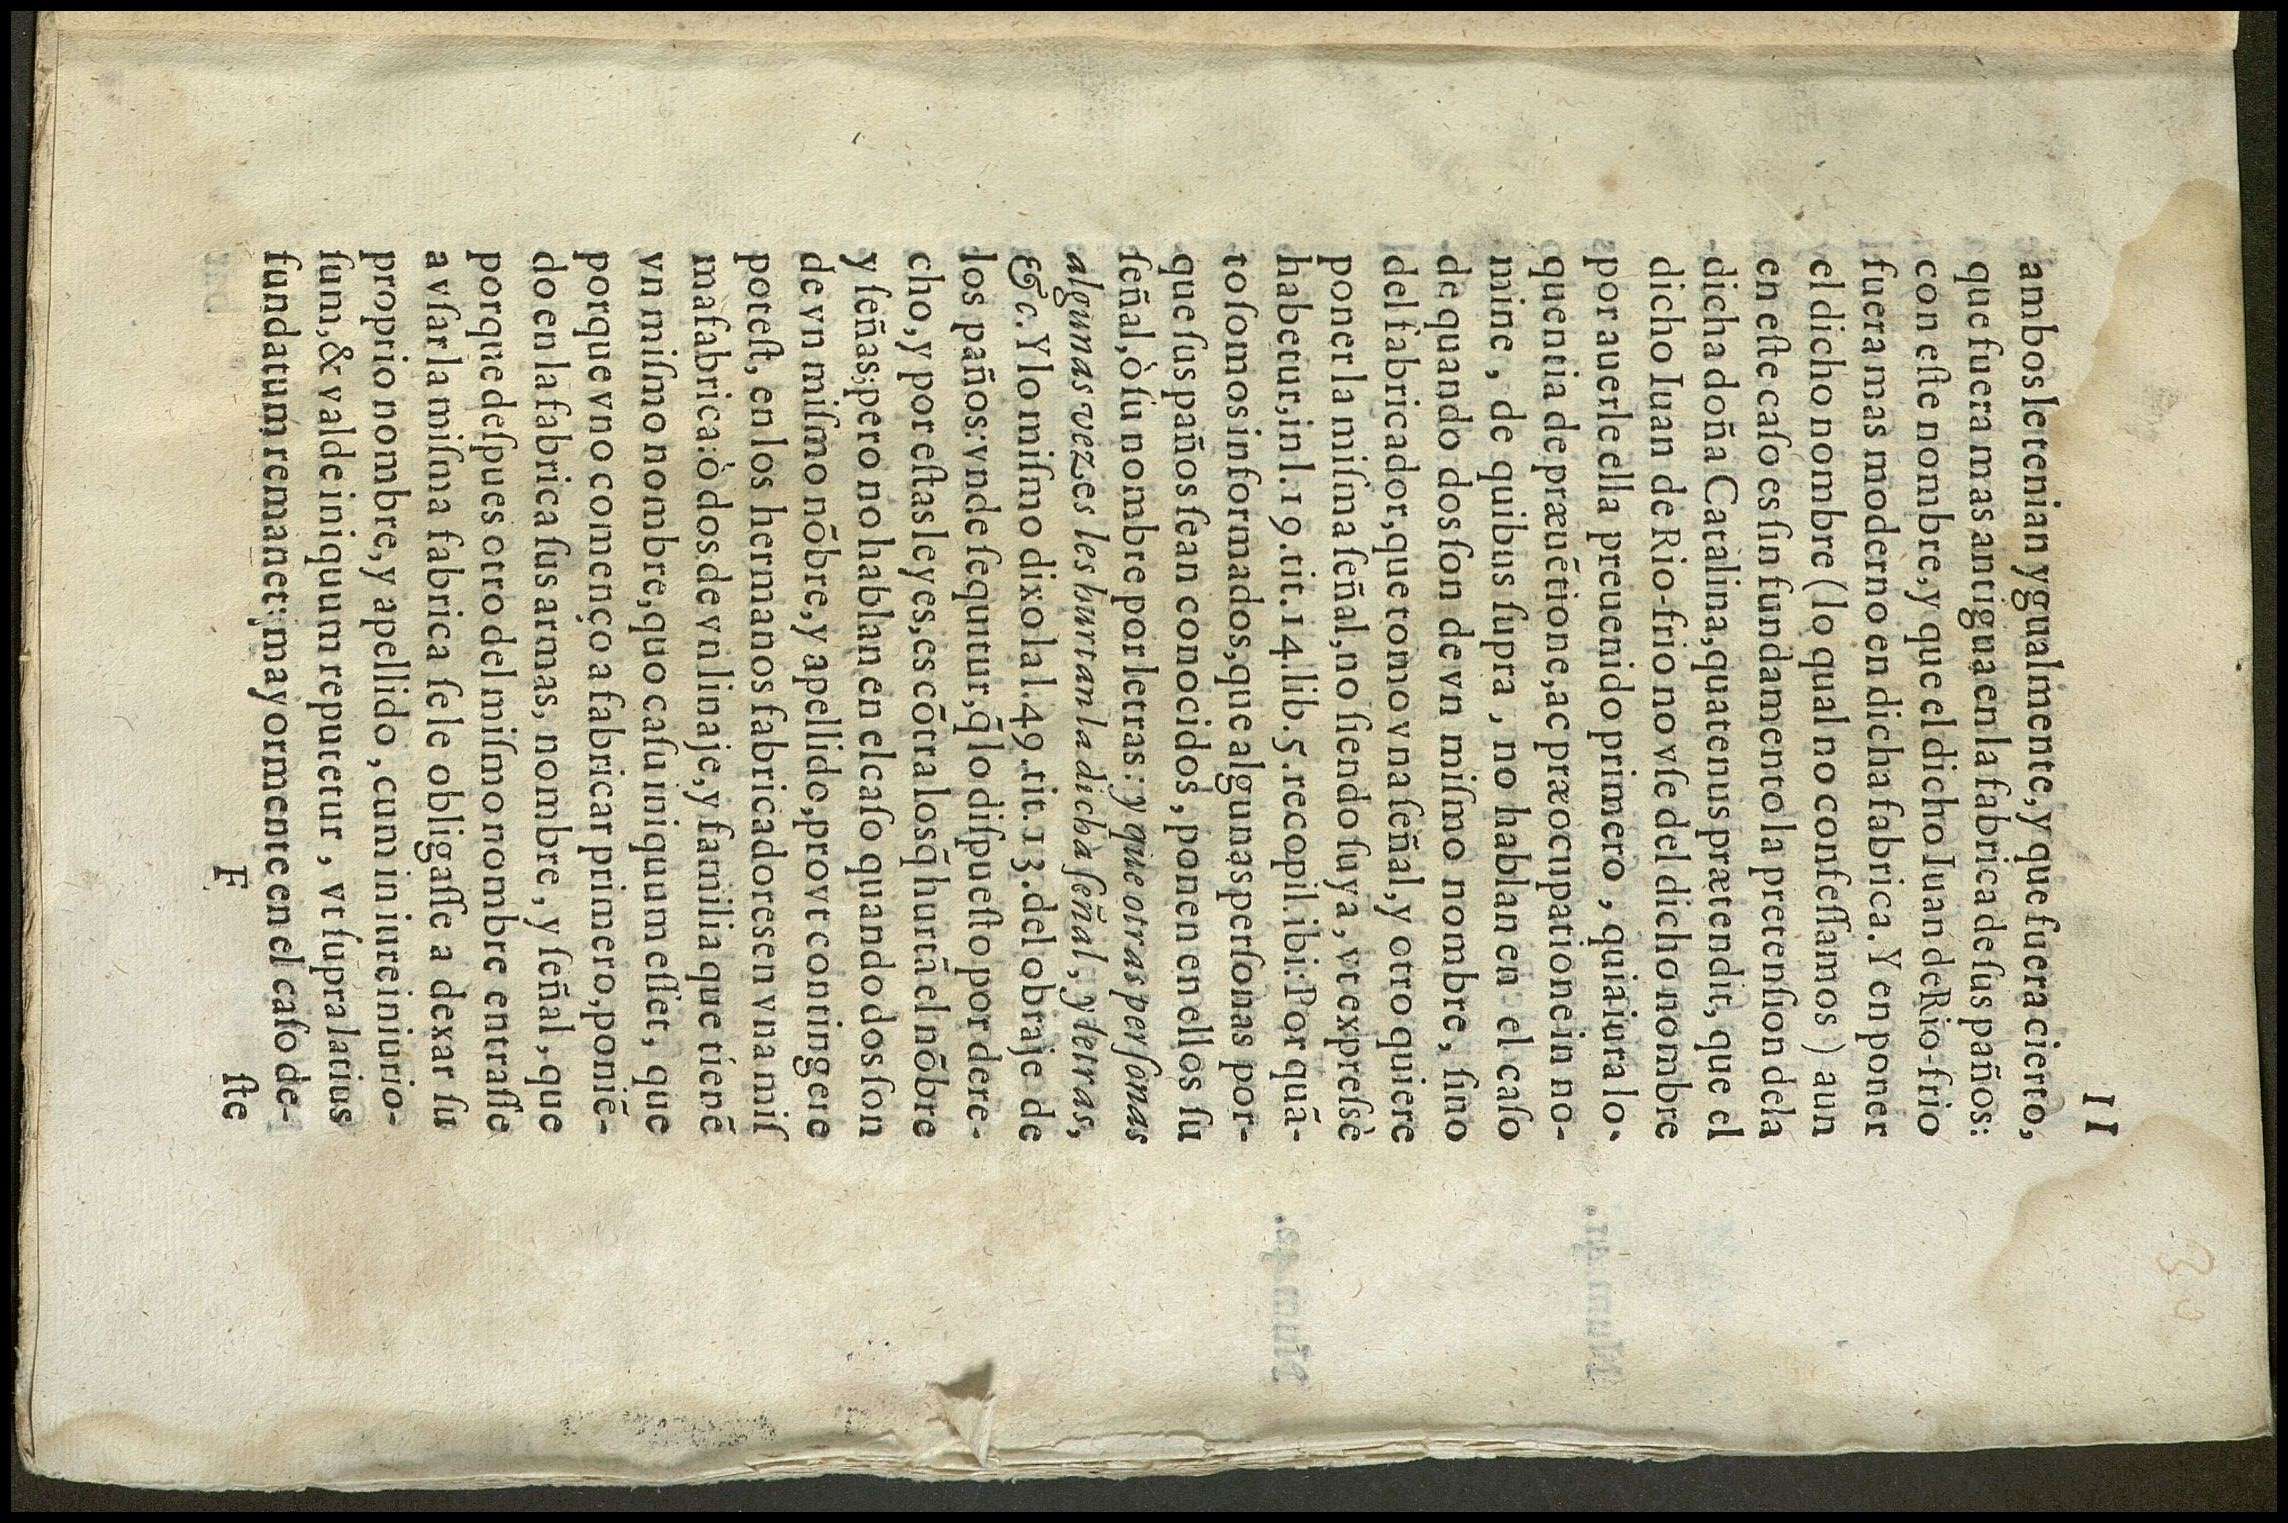 II
ambos le tenian ygualmente, y que fuera cierto,
que fuera mas antigua en la fabrica de ſus paños:
con eſte nombre, y que el dicho Iuan de Rio-frio
fuera mas moderno en dicha fabrica. Y en poner
el dicho nombre (lo qual no confeſſamos) aun
en eſte caſo es ſin fundamento la pretenſion de la
dicha doña Catalina, quatenus prætendit, que el
dicho Iuan de Rio-frio no vſe del dicho nombre
por auerle ella preuenido primero, quia iura lo-
quentia de præuẽtione, ac præocupatione in no-
mine, de quibus ſupra, no hablan en el caſo
de quando dos ſon de vn miſmo nombre, ſino
del fabricador, que tomo vna ſeñal, y otro quiere
poner la miſma ſeñal, no ſiendo ſuya, vt expreſsè
habetur, in l. 19. tit. 14. lib. 5. recopil. ibi: Por quã-
to ſomos informados, que algunas perſonas por-
que ſus paños ſean conocidos, ponen en ellos ſu
ſeñal, ò ſu nombre por letras: y que otras perſonas
algunas vezes les hurtan la dicha ſeñal, y letras,
&c. Y lo miſmo dixo la l. 49. tit. 13. del obraje de
los paños: vnde ſequitur, q̃ lo diſpueſto por dere-
cho, y por eſtas leyes, es cõtra los q̃ hurtã el nõbre
y ſeñas; pero no hablan en el caſo quando dos ſon
de vn miſmo nõbre, y apellido, provt contingere
poteſt, en los hermanos fabricadores en vna miſ
ma fabrica: ò dos de vn linaje, y familia que tienẽ
vn miſmo nombre, quo caſu iniquum eſſet, que
porque vno començo a fabricar primero, poniẽ-
do en la fabrica ſus armas, nombre, y ſeñal, que
porque deſpues otro del miſmo nombre entraſſe
a vſar la miſma fabrica ſe le obligaſſe a dexar ſu
proprio nombre, y apellido, cum in iure iniurio-
ſum, & valde iniquum reputetur, vt ſupra latius
fundatum remanet; mayormente en el caſo de-
F
ſte